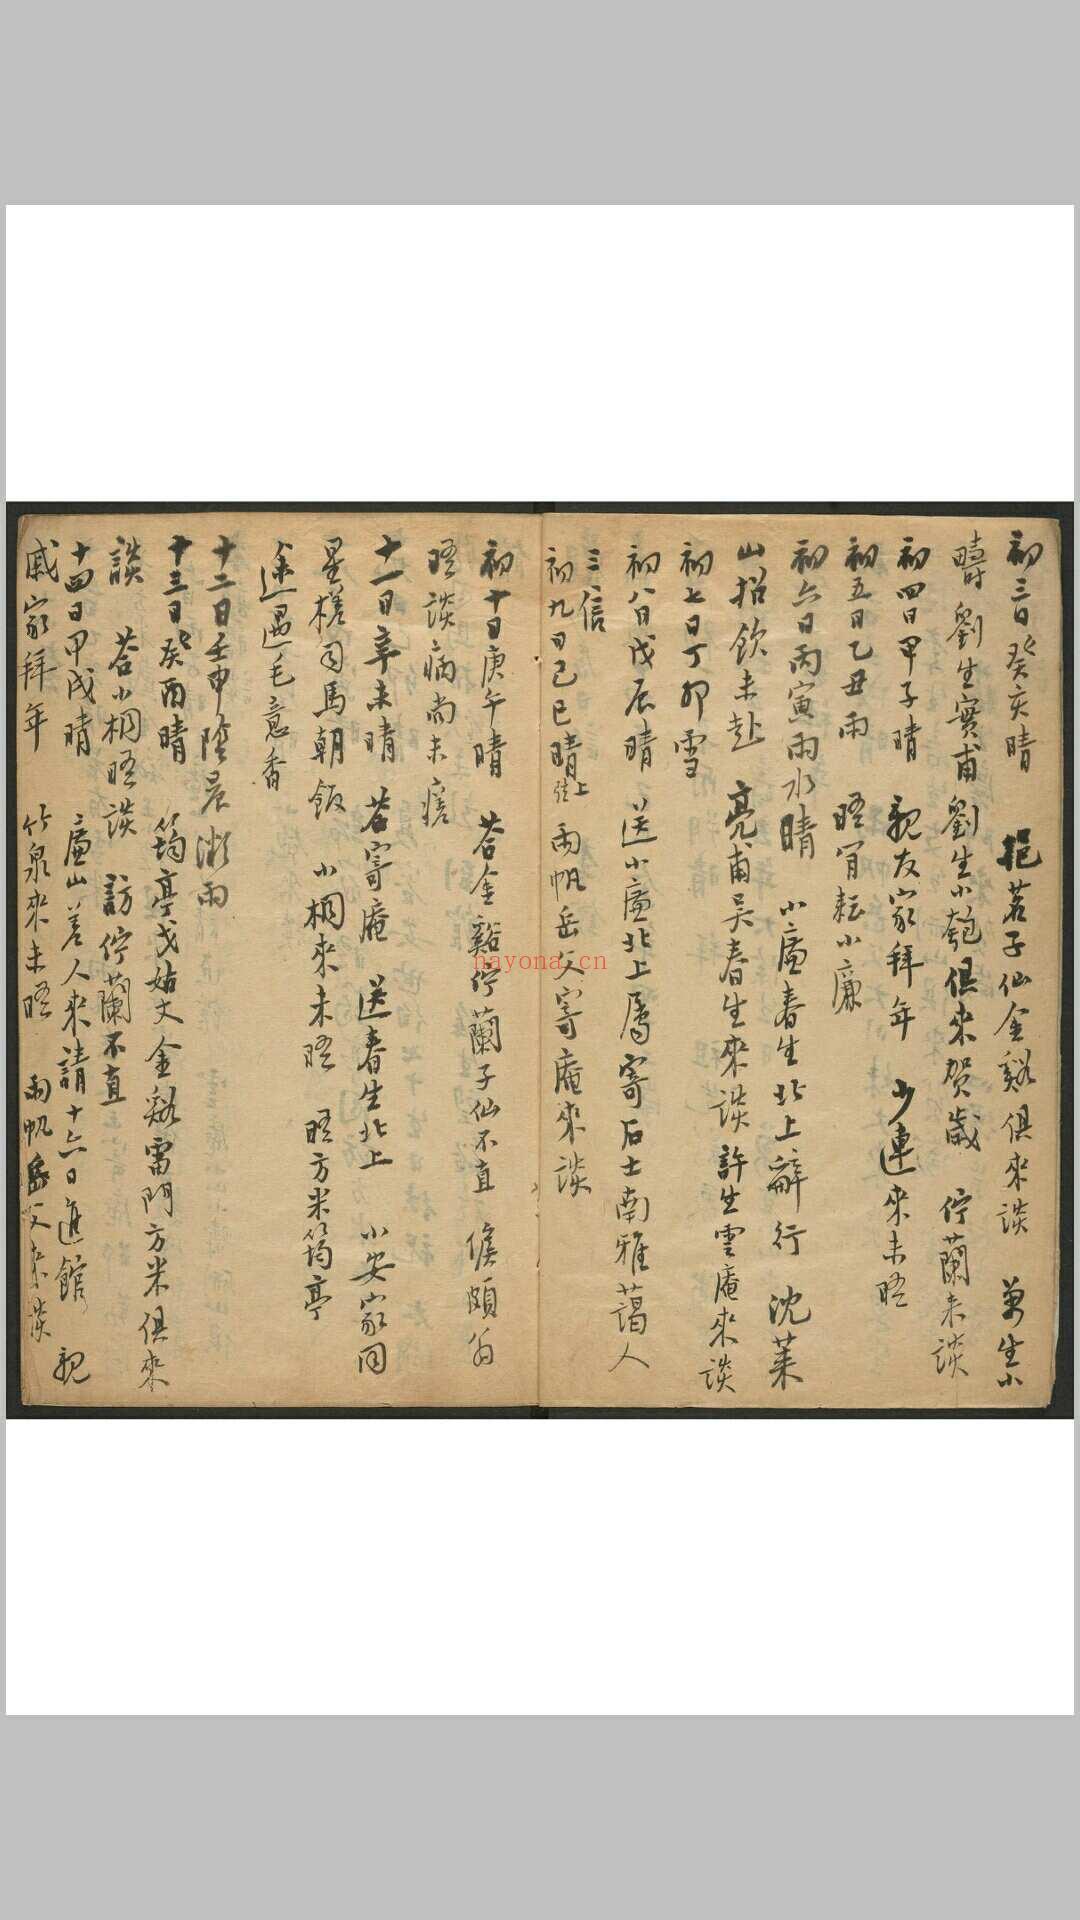 初三日癸亥晴　挹茗子仙金谿俱來談　萬生小
疇劉生實甫劉生小匏俱來賀歲　佇蘭來談
初四日甲子晴　親友家拜年　少連來未晤
初五日乙丑雨　晤眉耘小廉
初六日丙寅雨水晴　小廉春生北上辭行　沈萊
山招飲未赴　亮甫吳春生來談　許生雲庵來談
初七日丁卯雪
初八日戊辰晴　送小廉北上屬寄石士南雅藹人
三信
初九日己巳晴上弦　雨帆岳父寄庵來談
初十日庚午晴　答金谿佇蘭子仙不直　侯頗翁
晤談病尚未瘥
十一日辛未晴　答寄庵　送春生北上　小安家同
星槎司馬朝飯　小桐來未晤　晤方米筠亭
途遇毛意香
十二日壬申陰晨微雨
十三日癸酉晴　筠亭戈姑丈金谿雷門方米俱來
談　答小桐晤談　訪佇蘭不直
十四日甲戌晴　廉山差人來請十六日進館　親
戚家拜年　竹泉來未晤　雨帆岳父來談
nayona.cn